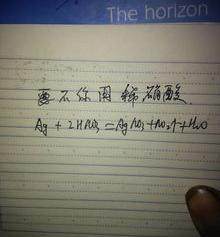 The horizon
要不你用稀硝酸
Ag + 2HNO₃ = AgNO₃ + NO₂↑ + H₂O